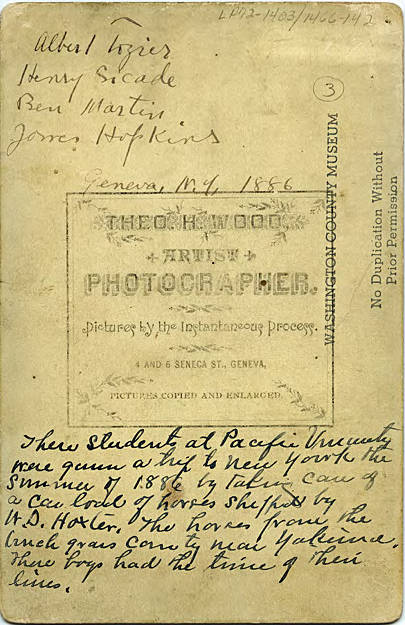 LPA72-1403/1466-142
Albert Lozier
Henry Sicade
Ben Martin
James Hopkins
3
Geneva, N.Y, 1886
THEO. H. WOOD,
ARTIST
PHOTOGRAPHER.
Pictures by the Instantaneous Process.
4 AND 6 SENECA ST., GENEVA,
PICTURES COPIED AND ENLARGED
WASHINGTON COUNTY MUSEUM
No Duplication Without
Prior Permission
These students at Pacific University
were given a trip to New York the
Summer of 1886 by taking care of
a car load of horses shipped by
W.D. Hoxter. The horses from the
bunch grass county near Yakima.
These boys had the time of their
lives.